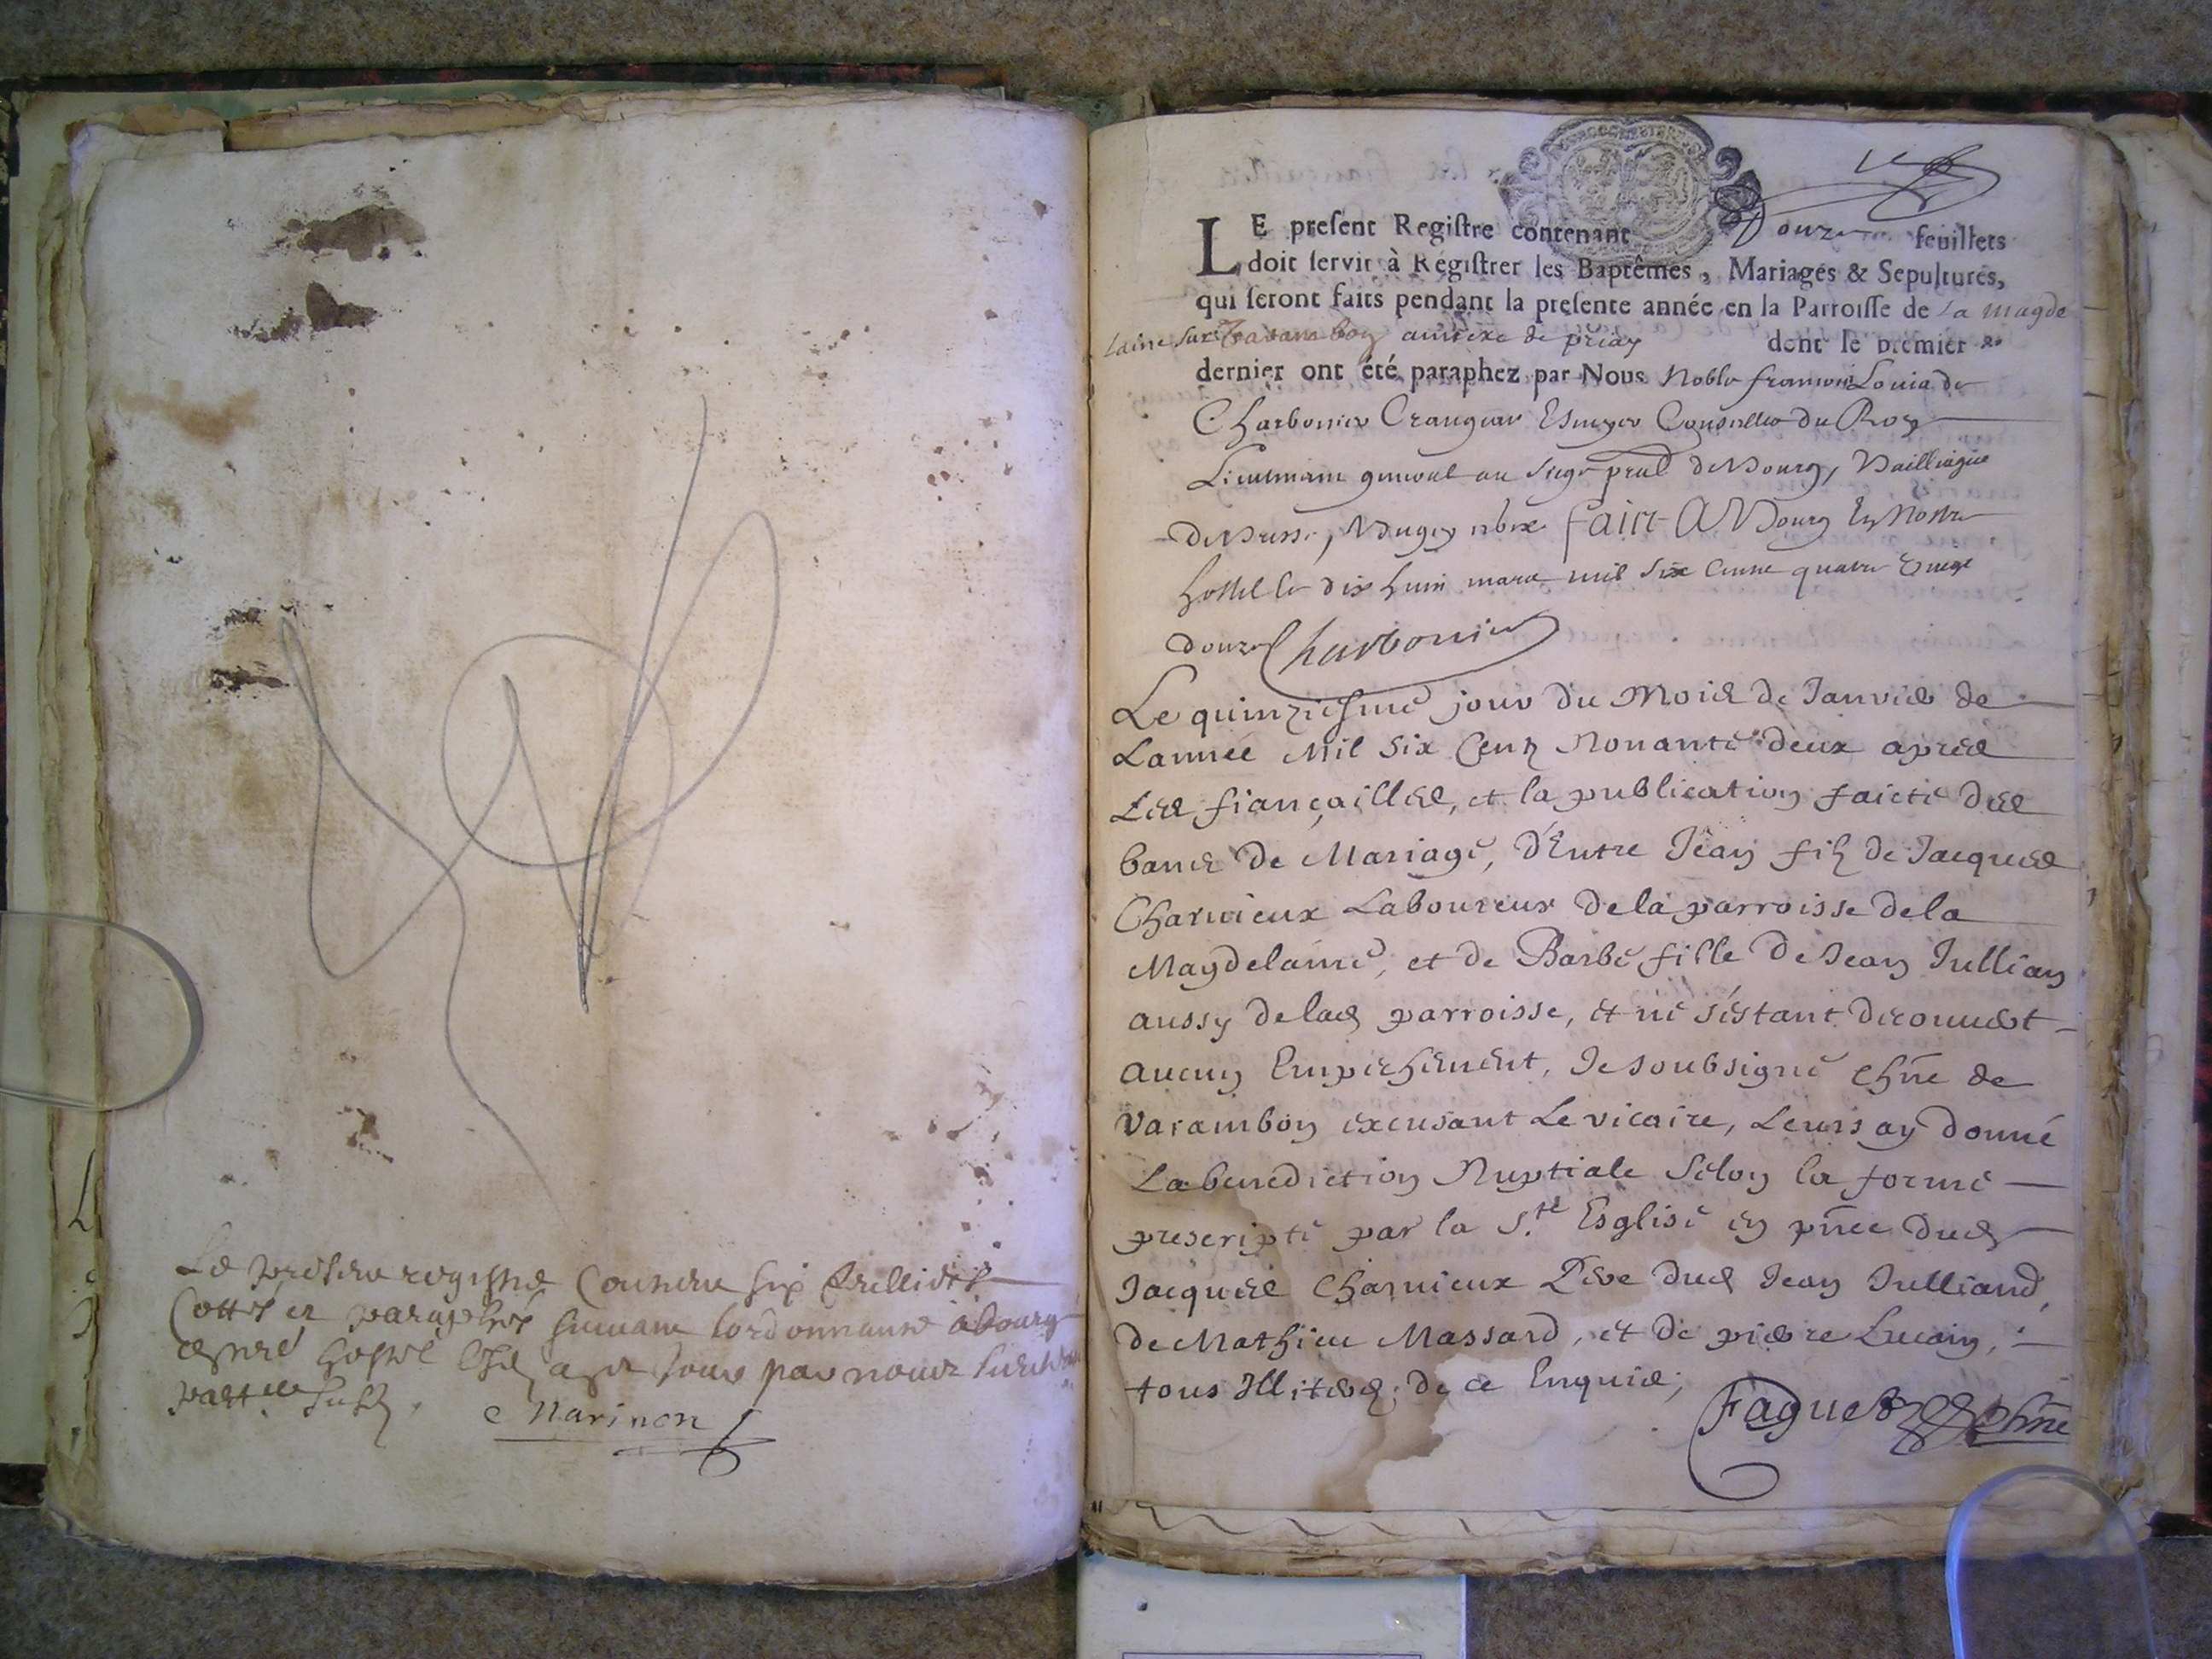 Le present registre contenu six feullietz
Cottés et paraphés suivant lordonnance à bourg
en nre hostel par nous
Marinon
LE present Registre contenant Douze feuillets
doit servir à Registrer les Baptêmes, Mariages & Sepultures,
qui seront faits pendant la presente année en la Parroisse de La Magde
laine sur Varambon annexe de priay dont le premier &
dernier ont été paraphez par Nous Noble françois Louis de
Charbonier Crangeac Escuyer Conseiller du Roy
Lieutenant general au siege pñal de Bourg, Bailliage
de Bresse, Bugey Faict A Bourg En Nostre
hostel le dix huit mars mil six cents quatre vingt
douze Charbonier
Le quinziesme jour du Mois de Janvier de
Lannée Mil six Centz Nonante deux apres
Les fiançailles, et la publication faicte des
bans de Mariage, d'Entre Jean filz de Jacques
Charvieux Laboureur de la parroisse de la
Magdelaine, et de Barbe fille de Jean Jullian
aussy de lad parroisse, et ne s'estant decouvert
aucun Empechement, Je soubsigné chñe de
Varambon excusant Le vicaire, Leurs ay donné
La benediction Nuptiale selon la forme
prescripte par la S.te Esglise en pñce dud
Jacques Charvieux Pere dud Jean Julliand,
de Mathieu Massard, et de pierre Lucain,
tous Illiterés de ce Enquis;
Faguet chñe